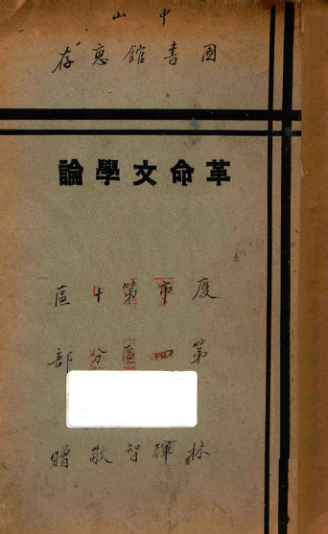 中山
圖書館惠存
革命文學論
廈市第十區
第四區分部
林輝智敬贈